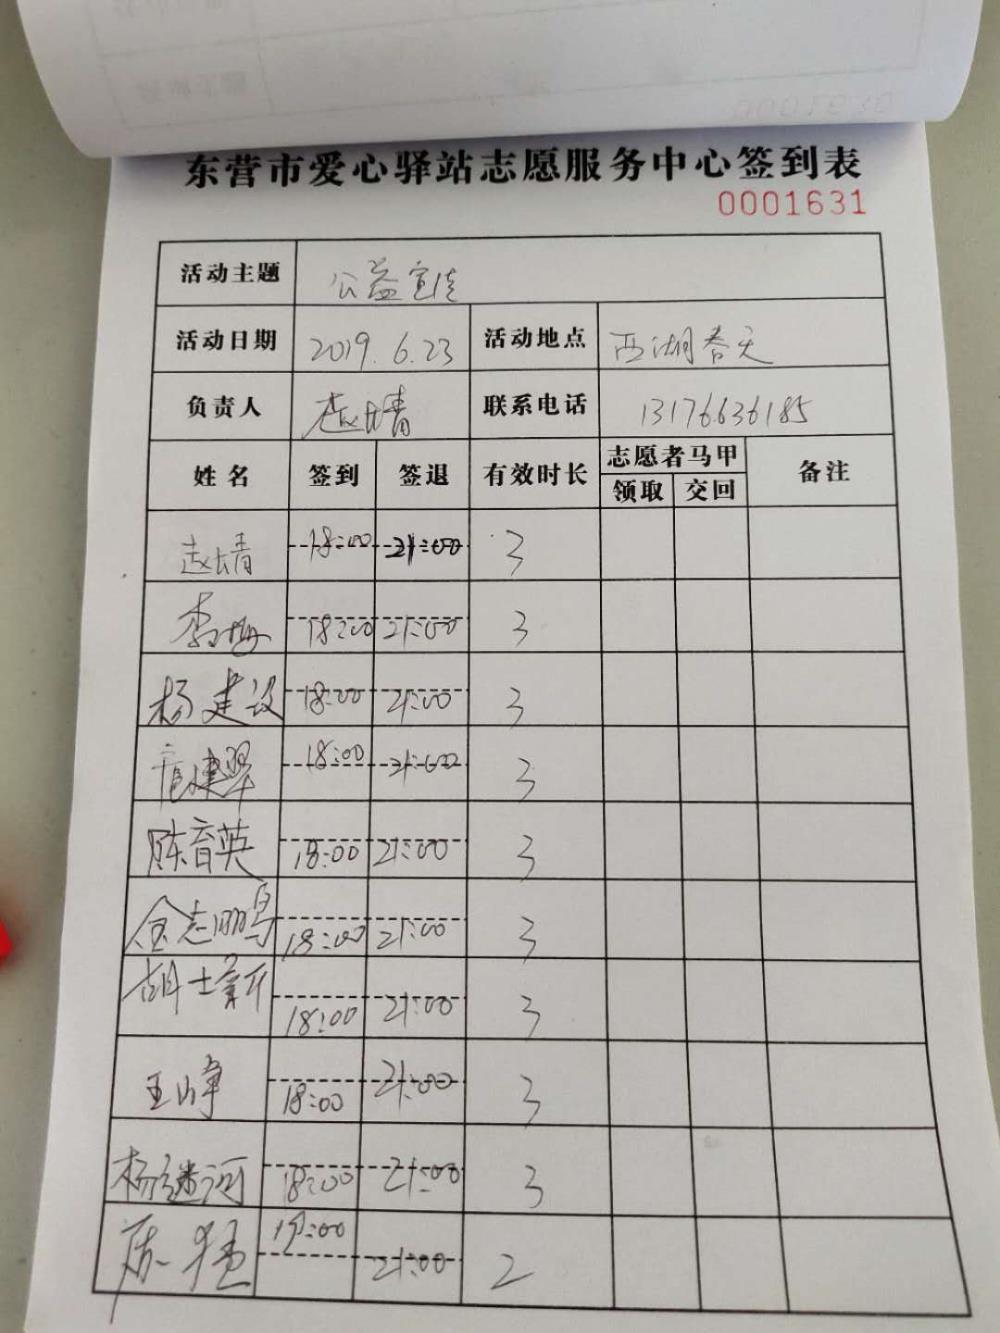 东营市爱心驿站志愿服务中心签到表
0001631
活动主题 公益宣传
活动日期 2019.6.23 活动地点 西湖春天
负责人 赵长青 联系电话 13176636185
姓名 签到 签退 有效时长 志愿者马甲 备注
领取 交回
赵长青 18:00 21:00 3
李梅 18:00 21:00 3
杨建设 18:00 21:00 3
18:00 21:00 3
陈育英 18:00 21:00 3
金志鹏 18:00 21:00 3
胡士 18:00 21:00 3
王山峥 18:00 21:00 3
杨继河 18:00 21:00 3
19:00 21:00 2